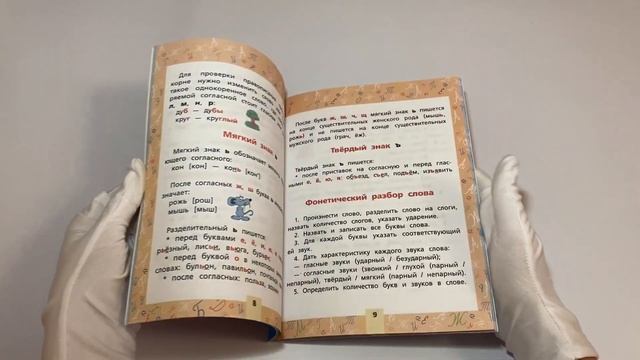 Для проверки
корне нужно изменить
такое однокоренное слово
ряемой согласной стоит
л, м, н, р:
дуб — дубы
круг — круглый
Мягкий знак ь
Мягкий знак ь обозначает
ющего согласного:
кон [кон] — конь [кон']
После согласных ж, ш буква ь
значает:
рожь [рош]
мышь [мыш]
Разделительный ь пишется:
• перед буквами е, ё, и,
разный, лисьи, вьюга, бурьян
• перед буквой о в некоторых
словах: бульон, павильон,
• после согласных: польза,
8
После букв ж, ш, ч, щ мягкий знак ь пишется
на конце существительных женского рода (мышь,
рожь) и не пишется на конце существительных
мужского рода (грач, ёж).
Твёрдый знак ъ
Твёрдый знак ъ пишется:
• после приставок на согласную и перед глас-
ными е, ё, ю, я: объезд, съел, подъём, изъявить
Фонетический разбор слова
1. Произнести слово, разделить слово на слоги,
назвать количество слогов, указать ударение.
2. Назвать и записать все буквы слова.
3. Для каждой буквы указать соответствующий
ей звук.
4. Дать характеристику каждого звука слова:
— гласные звуки (ударный / безударный);
— согласные звуки (звонкий / глухой (парный /
непарный), твёрдый / мягкий (парный / непарный).
5. Определить количество букв и звуков в слове.
9